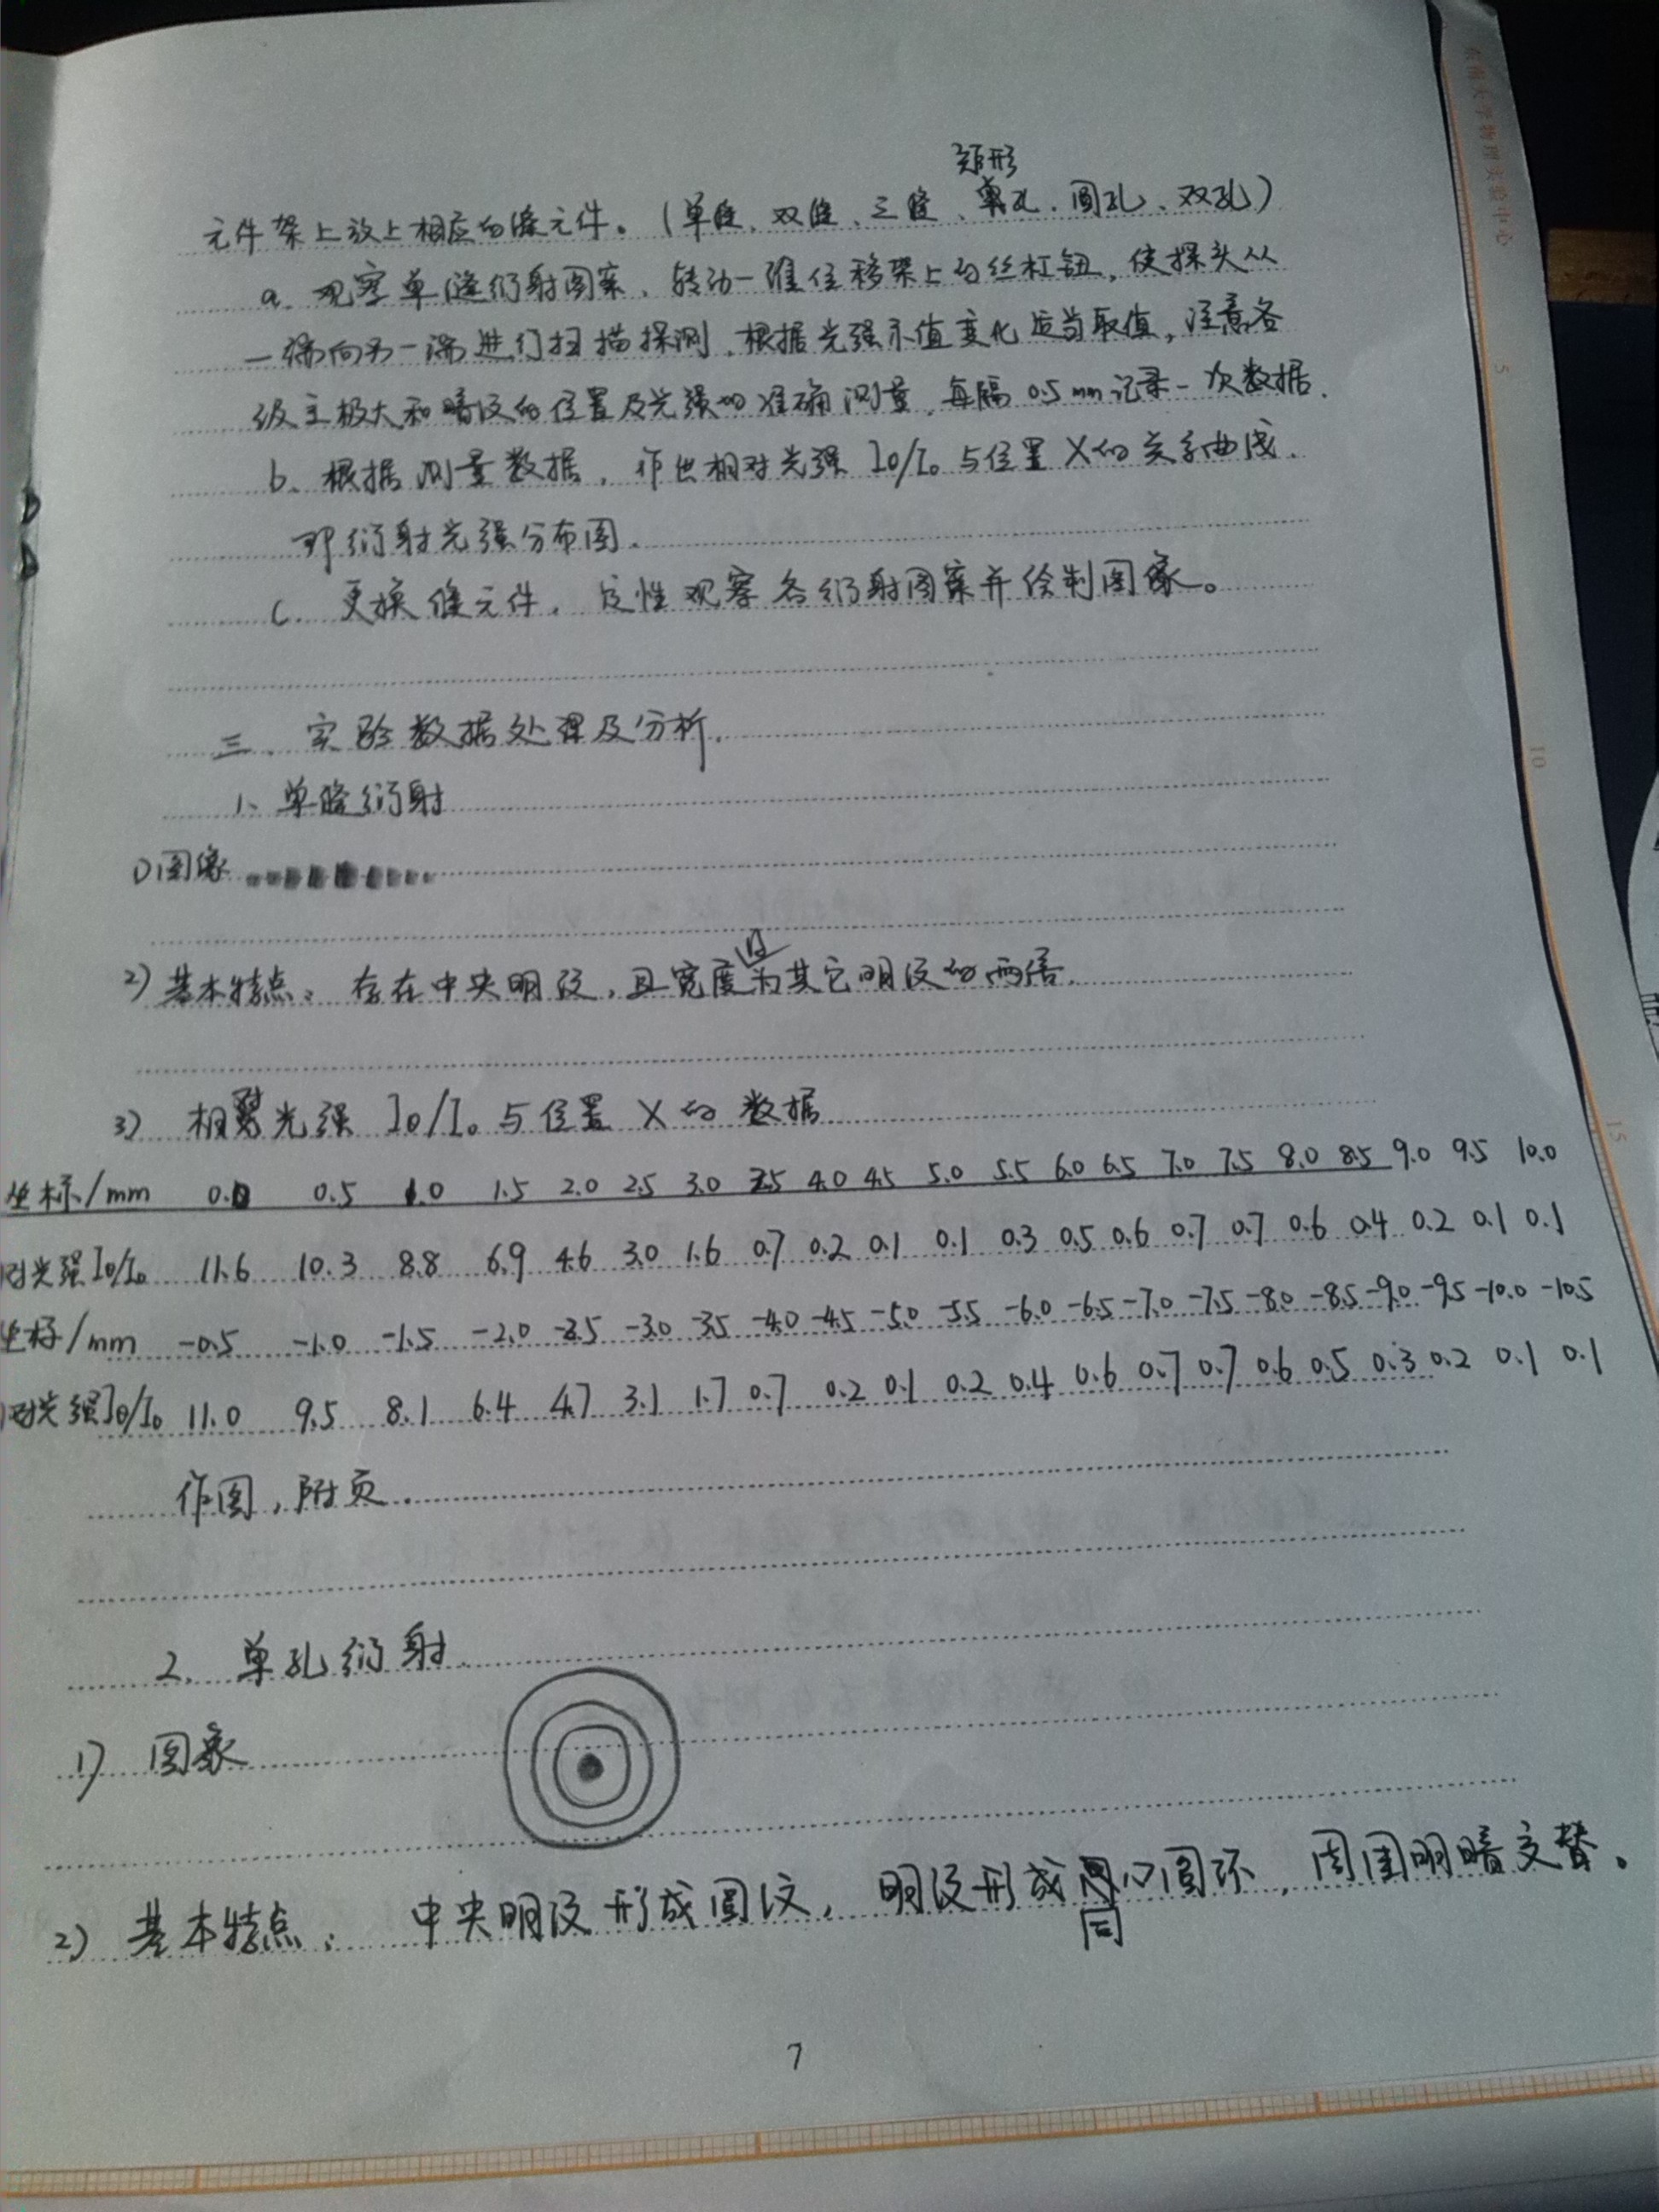 矩形
元件架上放上相应的缝元件。(单缝、双缝、三缝、单孔、圆孔、双孔)
a. 观察单缝衍射图案,转动一维位移架上的丝杠钮,使探头从
一端向另一端进行扫描探测,根据光强示值变化适当取值,注意各
级主极大和暗纹的位置及光强的准确测量,每隔0.5mm记录一次数据.
b. 根据测量数据,作出相对光强 Iθ/I₀ 与位置X的关系曲线.
即衍射光强分布图.
c. 更换缝元件,定性观察各衍射图案并绘制图像。
三、实验数据处理及分析.
1、单缝衍射
1)图像
2)基本特点:存在中央明纹,且宽度为其它明纹的两倍.
3) 相对光强 Iθ/I₀ 与位置 X 的数据
坐标/mm 0.0 0.5 1.0 1.5 2.0 2.5 3.0 3.5 4.0 4.5 5.0 5.5 6.0 6.5 7.0 7.5 8.0 8.5 9.0 9.5 10.0
对光强Iθ/I₀ 11.6 10.3 8.8 6.9 4.6 3.0 1.6 0.7 0.2 0.1 0.1 0.3 0.5 0.6 0.7 0.7 0.6 0.4 0.2 0.1 0.1
坐标/mm -0.5 -1.0 -1.5 -2.0 -2.5 -3.0 -3.5 -4.0 -4.5 -5.0 -5.5 -6.0 -6.5 -7.0 -7.5 -8.0 -8.5 -9.0 -9.5 -10.0 -10.5
对光强Iθ/I₀ 11.0 9.5 8.1 6.4 4.7 3.1 1.7 0.7 0.2 0.1 0.2 0.4 0.6 0.7 0.7 0.6 0.5 0.3 0.2 0.1 0.1
作图,附页.
2、单孔衍射.
1) 图象
2) 基本特点: 中央明纹形成圆纹,明纹形成同心圆环,周围明暗交替。
7
东南大学物理实验中心
5
10
15